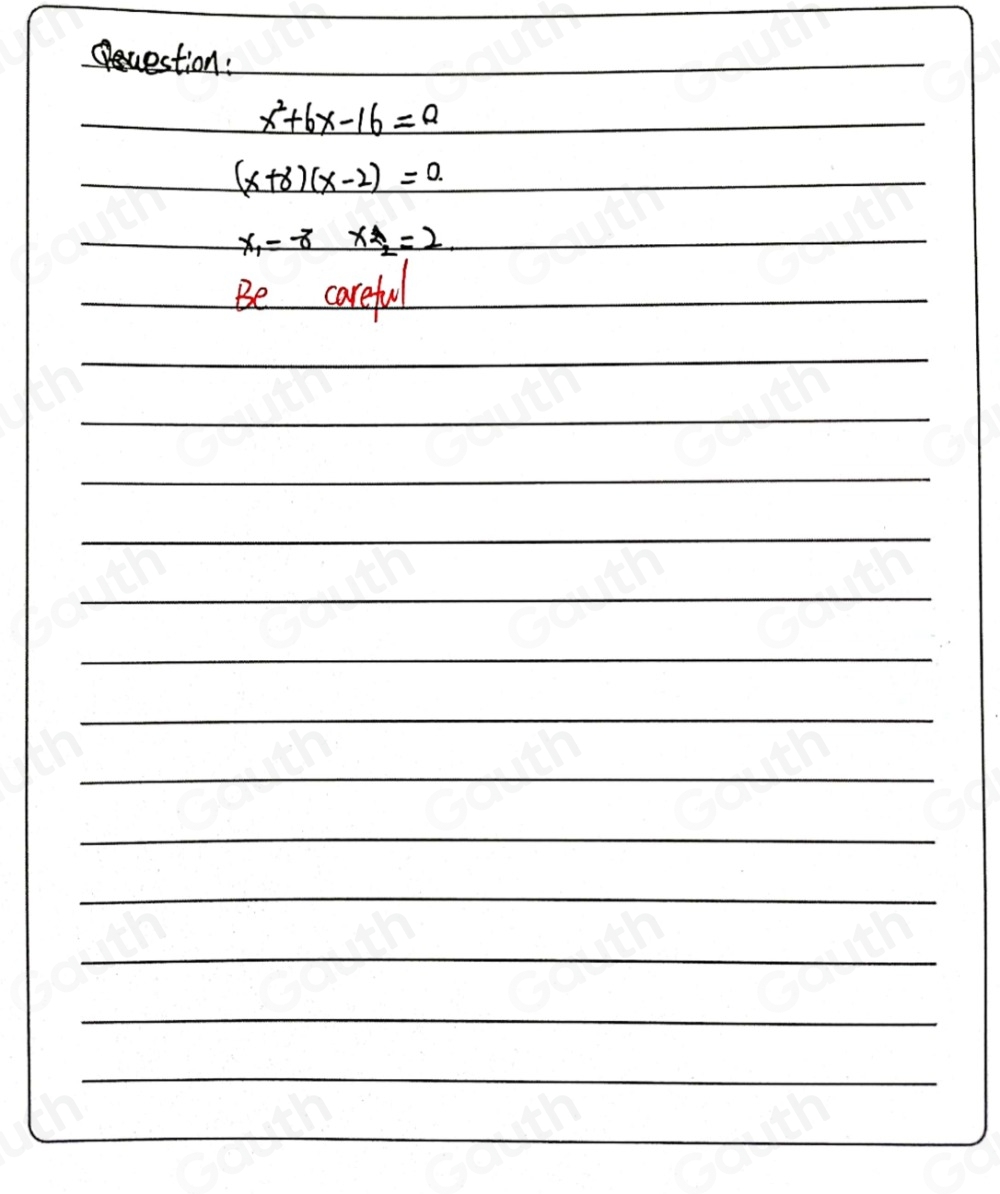 Qeuestion:
x²+6x-16=0
(x+8)(x-2)=0.
x₁=-8 x₂=2.
Be careful